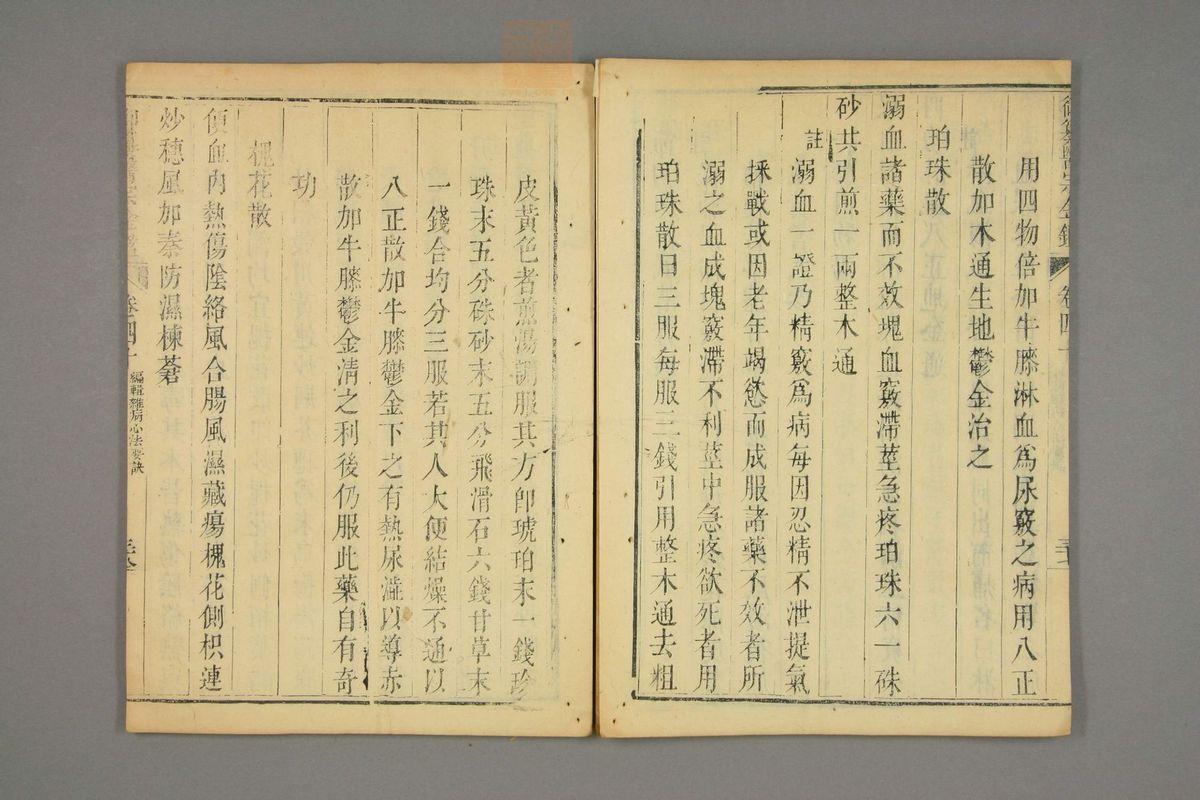 用四物倍加牛膝淋血爲尿竅之病用八正
散加木通生地鬱金治之
珀珠散
溺血諸藥而不效塊血竅滯莖急疼珀珠六一硃
砂共引煎一兩整木通
註溺血一證乃精竅爲病每因忍精不泄提氣
採戰或因老年竭慾而成服諸藥不效者所
溺之血成塊竅滯不利莖中急疼欲死者用
珀珠散日三服每服三錢引用整木通去粗
皮黃色者煎湯調服其方卽琥珀末一錢珍
珠末五分硃砂末五分飛滑石六錢甘草末
一錢合均分三服若其人大便結燥不通以
八正散加牛膝鬱金下之有熱尿澁以導赤
散加牛膝鬱金清之利後仍服此藥自有奇
功
槐花散
便血內熱傷陰絡風合腸風濕藏瘍槐花側枳連
炒穗風加秦防濕楝蒼
編輯雜病心法要訣